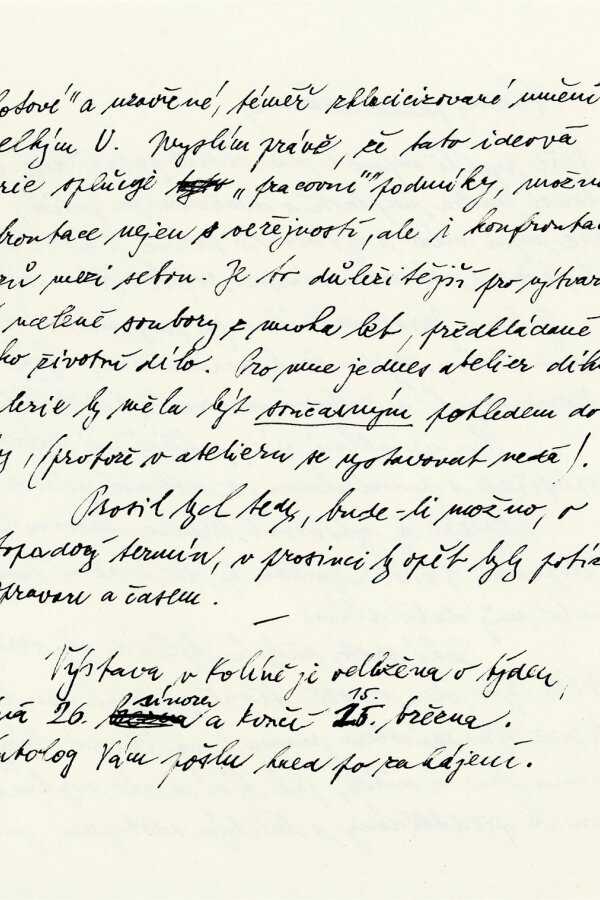 otové" a uzavřené, téměř zklacicizované umění
elkým U. Myslím právě, že tato ideová
rie splňuje „pracovní" podmínky, možno
frontace nejen s veřejností, ale i konfrontac
rů mezi sebou. Je to důležitější pro výtvar
ucelené soubory z mnoha let, předkládané
ko životní dílo. Pro mne jednes atelier díl
lerie by měla být současným pohledem do
y, (protože v atelieru se vystavovat nedá).
Prosil bych tedy, bude-li možno, o
topadový termín, v prosinci by opět byly potíž
pravou a časem.
—
Výstava v Kolíně je odložena o týden,
ná 26. února a končí 15. března.
atalog Vám pošlu hned po zahájení.